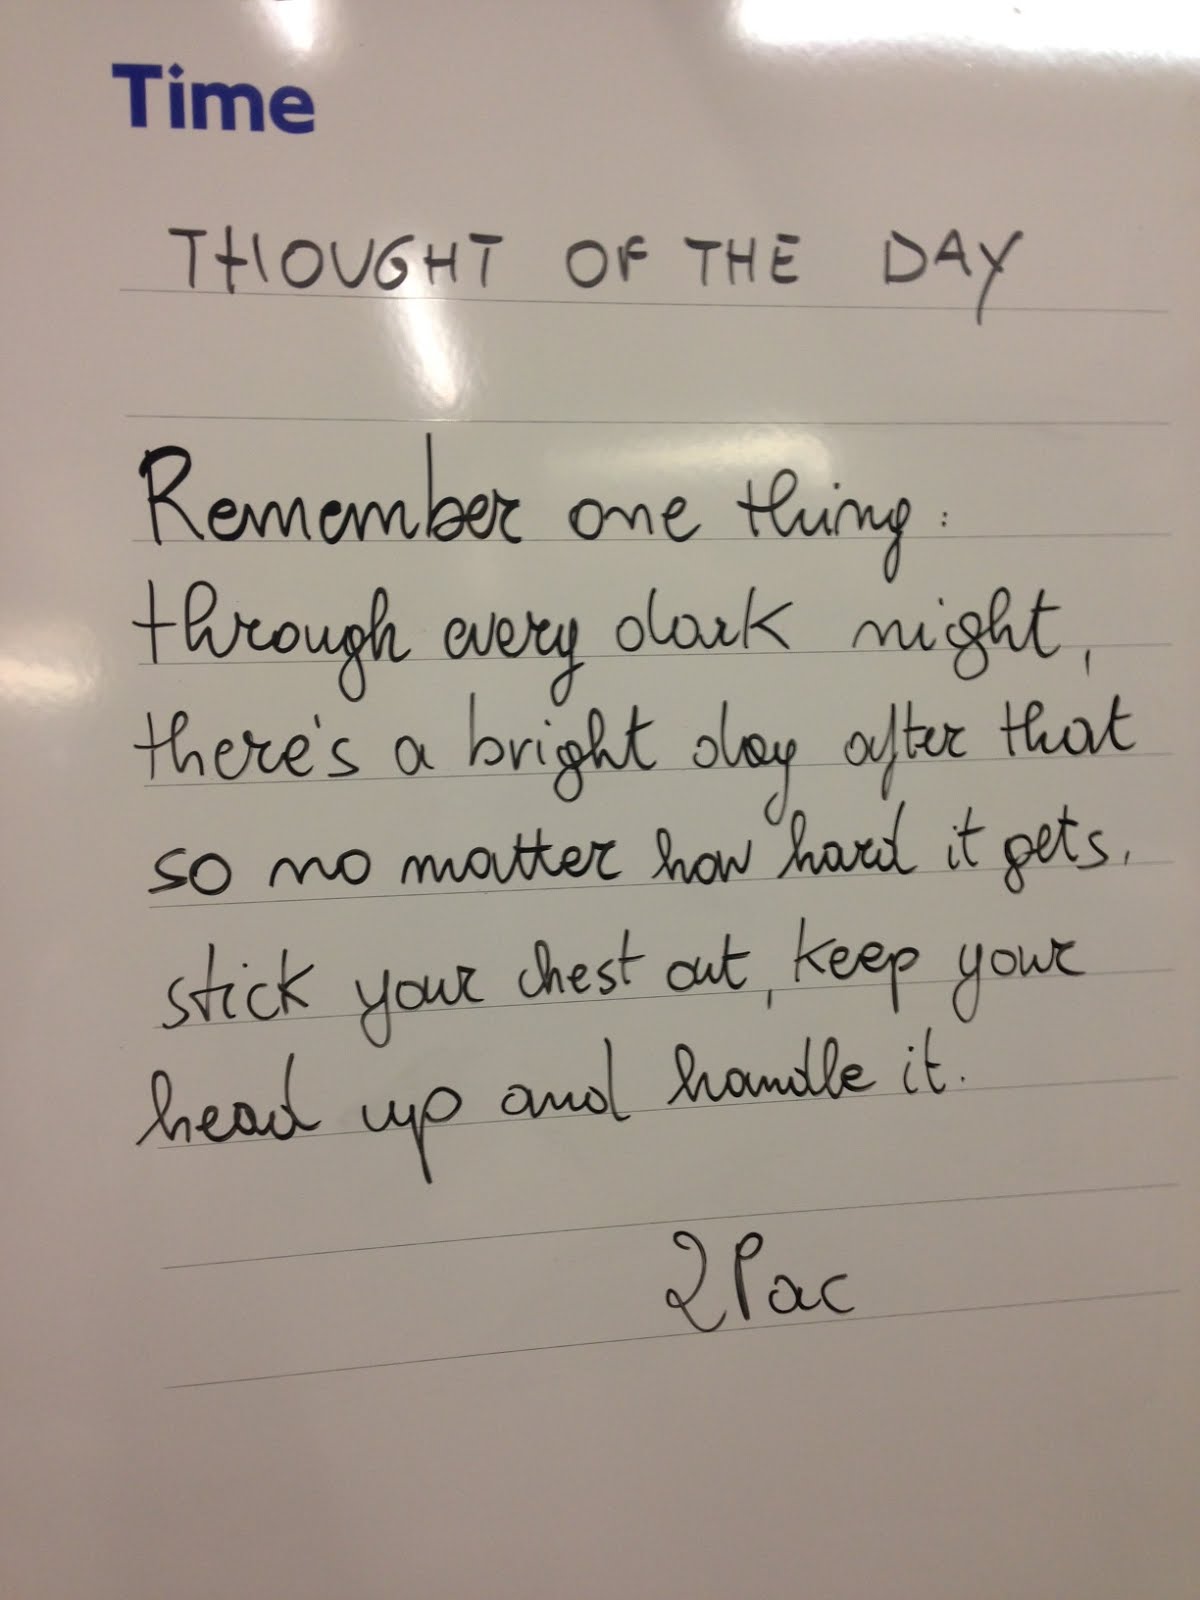 Time
THOUGHT OF THE DAY
Remember one thing:
through every dark night,
there's a bright day after that
so no matter how hard it gets,
stick your chest out, keep your
head up and handle it.
2Pac